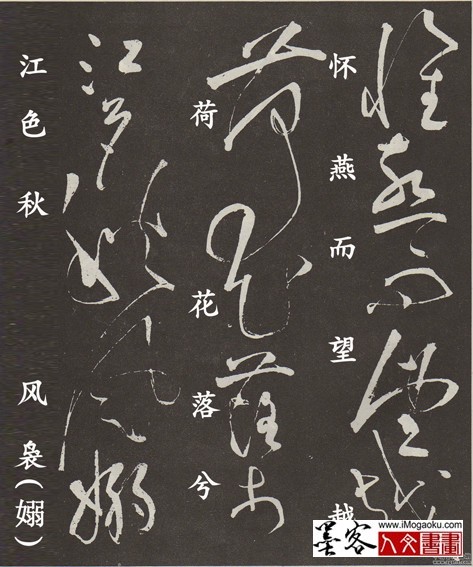 怀燕而望越
荷花落兮
江色秋风袅(嫋)
墨客 www.iMogaoku.com
人文書畫